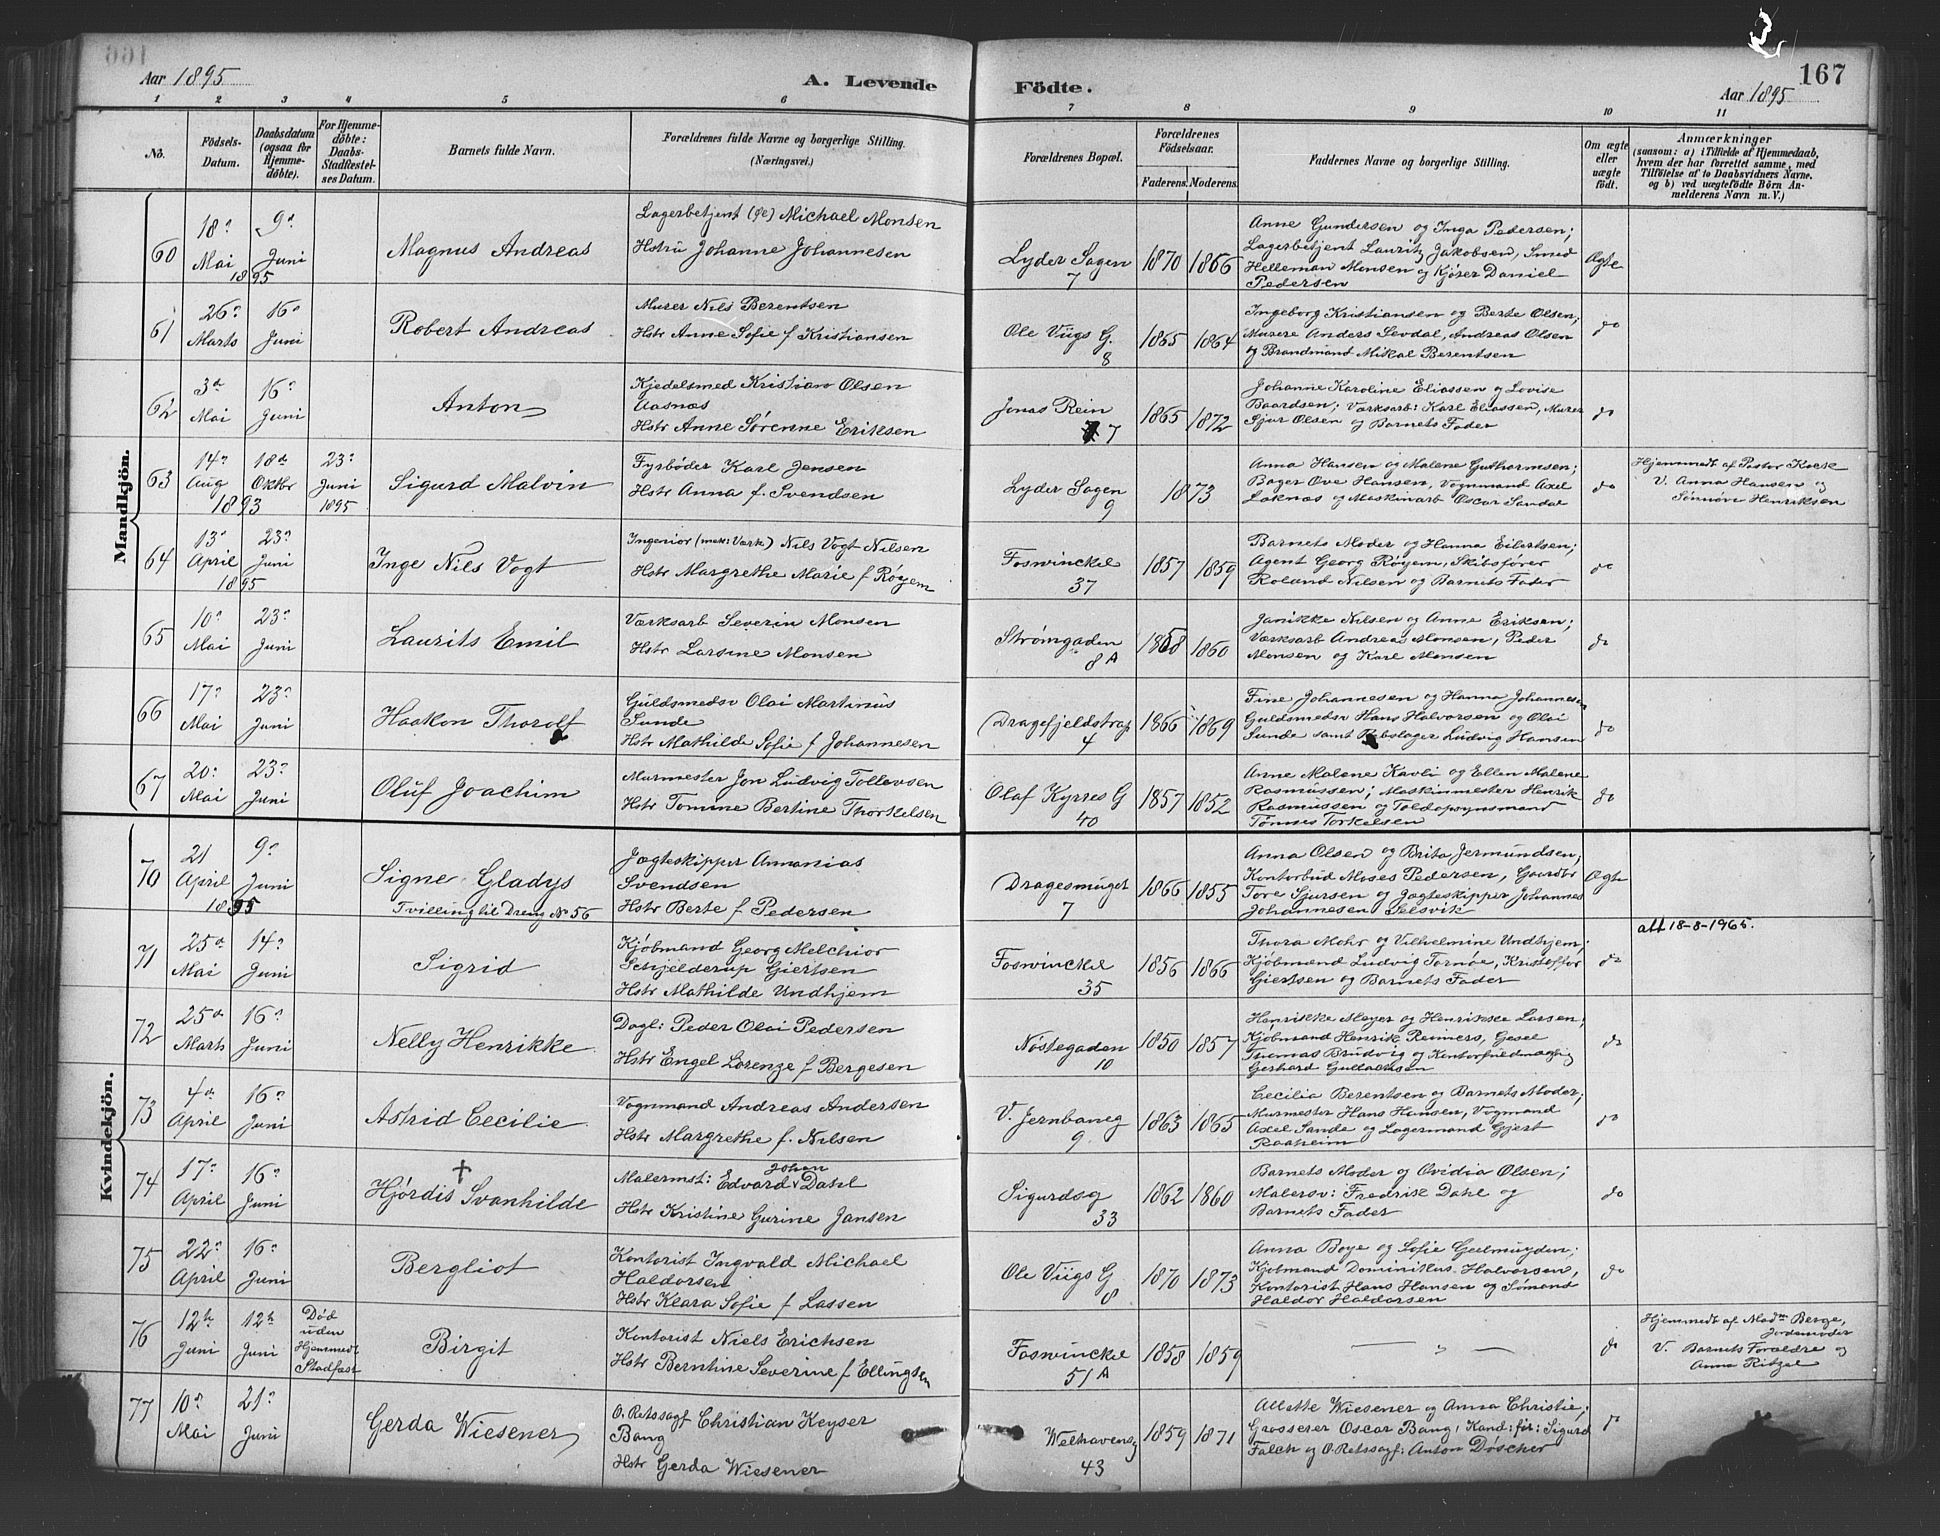 Aar 1895
A. Levende
Födte.
167
Aar 1895
1 2 3 4 5 6 7 8 9 10 11
No.
Födsels-
Datum.
Daabsdatum
(ogsaa for
Hjemme-
döbte).
For Hjemme-
döbte:
Daabs-
Stadfæstel-
ses Datum.
Barnets fulde Navn.
Forældrenes fulde Navne og borgerlige Stilling.
(Næringsvei.)
Forældrenes Bopæl.
Forældrenes
Födselsaar.
Faderens. Moderens.
Faddernes Navne og borgerlige Stilling.
Om ægte
eller
uægte
födt.
Anmærkninger
(saasom: a) i Tilfælde af Hjemmedaab,
hvem der har forrettet samme, med
Tilföielse af to Daabsvidners Navne,
og b) ved uægtefödte Börn An-
melderens Navn m. V.)
Mandkjön.
60
18de Mai
9de Juni
1895
Magnus Andreas
Lagerbetjent Michael Monsen
Hstru Johanne Johannesen
Lyder Sagen
7
1870 1866
Anne Gundersen og Inga Pedersen;
Lagerbetjent Lauritz Jakobsen, Smed
Helleman Monsen og Kjører Daniel
Pedersen
Ægte
61
26de Marts
16de Juni
Robert Andreas
Murer Nils Berentsen
Hstr Anne Sofie f Kristiansen
Ole Viigs G.
8
1865 1864
Ingeborg Kristiansen og Berte Olsen;
Murere Anders Sevdal, Andreas Olsen
og Brandmand Mikal Berentsen
do
62
3de Mai
16de Juni
Anton
Kjedelsmed Kristian Olsen
Aasnæs
Hstr Anne Sørenne Eriksen
Jonas Rein
7
1865 1872
Johanne Karoline Eliassen og Lovise
Baardsen; Værksarb: Karl Eliassen, Murer
Sjur Olsen og Barnets Fader
do
63
14de Aug
18de Oktbr
1893
23de Juni 1895
Sigurd Malvin
Fyrbøder Karl Jensen
Hstr Anna f. Svendsen
Lyder Sagen
9
1873
Anna Hansen og Malene Guthormsen;
Bager Ove Hansen, Vognmand Axel
Laknæs og Maskinarb Oscar Sandal
do
Hjemmedt af Pastor Kock
V. Anna Hansen og
Sønnøve Henriksen
64
13de April
23de Juni
1895
Inge Nils Vogt
Ingeniør (mek: Værk) Nils Vogt Nilsen
Hstr Margrethe Marie f Røyem
Foswinckel
37
1857 1859
Barnets Moder og Hanna Eilertsen;
Agent Georg Røyem, Skibsfører
Roland Nilsen og Barnets Fader
do
65
10de Mai
23de Juni
Laurits Emil
Værksarb Severin Monsen
Hstr Larsine Monsen
Strømgaden
8A
1868 1860
Janikke Nilsen og Anne Eriksen;
Værksarb Andreas Monsen, Peder
Monsen og Karl Monsen
do
66
17de Mai
23de Juni
Haakon Thorolf
Guldsmedsv Olai Martinus
Sunde
Hstr Mathilde Sofie f Johannesen
Dragefjeldstrap
4
1866 1869
Fine Johannesen og Hanna Johannesen
Guldsmedsv Hans Halvorsen og Olai
Sunde samt Rebslager Ludvig Hansen
do
67
20de Mai
23de Juni
Oluf Joachim
Murmester Jon Ludvig Tollevsen
Hstr Tomine Bertine Thorkelsen
Olaf Kyrres G
40
1857 1852
Anne Malene Kavli og Ellen Malene
Rasmussen; Maskinmester Henrik
Rasmussen og Toldopsynsmand
Tønnes Torkelsen
do
Kvindekjön.
70
21 April
9de Juni
1895
Signe Gladys
Tvilling til Dreng No 56
Jægteskipper Annanias
Svendsen
Hstr Berte f Pedersen
Dragesmuget
7
1866 1855
Anna Olsen og Brita Jermundsen;
Kontorbud Moses Pedersen, Gaardbr
Tore Sjursen og Jægteskipper Johannes
Johannesen Selsvik
Ægte
71
25de Mai
14de Juni
Sigrid
Kjøbmand Georg Melchior
Schjelderup Giertsen
Hstr Mathilde Undhjem
Foswinckel
35
1856 1866
Thora Mohr og Vilhelmine Undhjem;
Kjøbmænd Ludvig Tornøe, Kristoffer
Giertsen og Barnets Fader
do
att 18-8-1965.
72
25de Marts
16de Juni
Nelly Henrikke
Dagl: Peder Olai Pedersen
Hstr Engel Lorenze f Bergesen
Nøstegaden
10
1850 1857
Henrikke Meyer og Henrikke Larsen;
Kjøbmand Henrik Reimers, Gesel
Thomas Brudvig og Kontorfuldmægtig
Gerhard Gullaksen
do
73
4de April
16de Juni
Astrid Cecilie
Vognmand Andreas Andersen
Hstr Margrethe f. Nilsen
V. Jernbaneg
9
1863 1865
Cecilia Berentsen og Barnets Moder;
Murmester Hans Hansen, Vogmand
Axel Sande og Lagermand Gjert
Raaheim
do
74
17de April
16de Juni
†
Hjørdis Svanhilde
Malermst: Edvard Johan Dahl
Hstr Kristine Gurine Jansen
Sigurdsg
33
1862 1860
Barnets Moder og Ovidia Olsen;
Malersv: Fredrik Dahl og
Barnets Fader
do
75
22de April
16de Juni
Bergliot
Kontorist Ingvald Michael
Haldorsen
Hstr Klara Sofie f Lassen
Ole Viigs G
8
1870 1873
Anna Boye og Sofie Geelmuyden;
Kjøbmand Dominikus Halvorsen,
Kontorist Hans Hansen og Sømand
Haldor Haldorsen
do
76
12te Juni
12te Juni
Død
uden
Hjemmedt
Stadfæst
Birgit
Kontorist Niels Erichsen
Hstr Bernhine Severine f Ellingsen
Foswinckel
51A
1858 1859
— " —
do
Hjemmedt af Madm Berge,
Jordemoder
V. Barnets Forældre og
Anna Ritzel
77
10de Mai
21de Juni
Gerda Wiesener
O. Retssagf Christian Keyser
Bang
Hstr Gerda Wiesener
Welhavensg
43
1859 1871
Allette Wiesener og Anna Christie;
Grosserer Oscar Bang, Kand: for: Sigurd
Falch og O. Retssagf: Anton Døscher
do